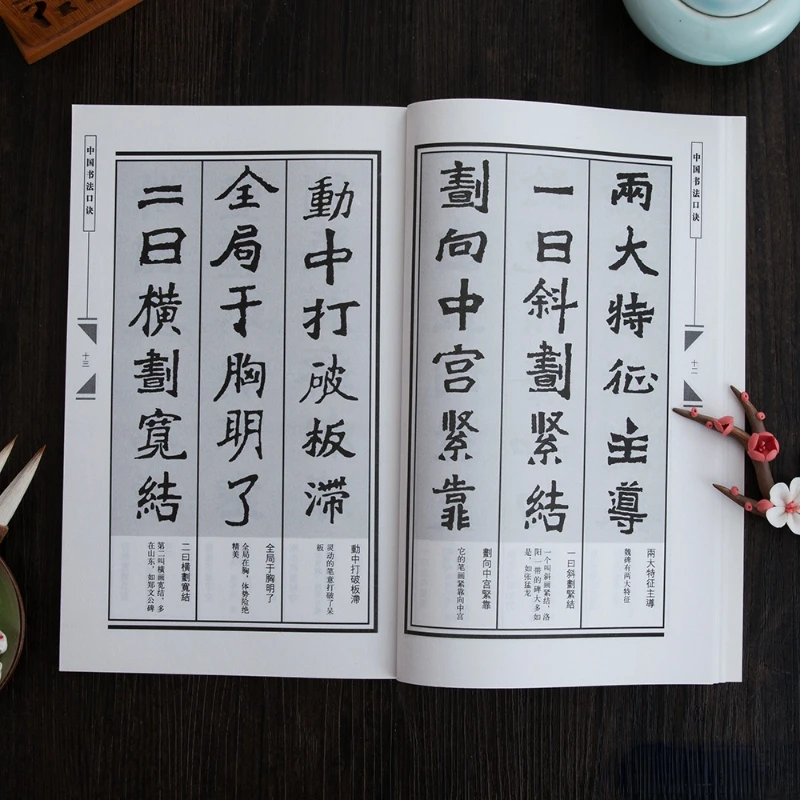 中国书法口诀
十二
兩大特征主導
一曰斜劃緊結
劃向中宫緊靠
兩大特征主導
魏碑有两大特征
一曰斜劃緊結
一个叫斜画紧结,洛
阳一带的碑大多如
是,如张猛龙
劃向中宫緊靠
它的笔画紧靠向中宫
動中打破板滯
全局于胸明了
二曰橫劃寬結
動中打破板滯
灵动的笔意打破了呆
板
全局于胸明了
全局在胸,体势险绝
精美
二曰橫劃寬結
第二叫横画宽结,多
在山东,如郑文公碑
中国书法口诀
十三